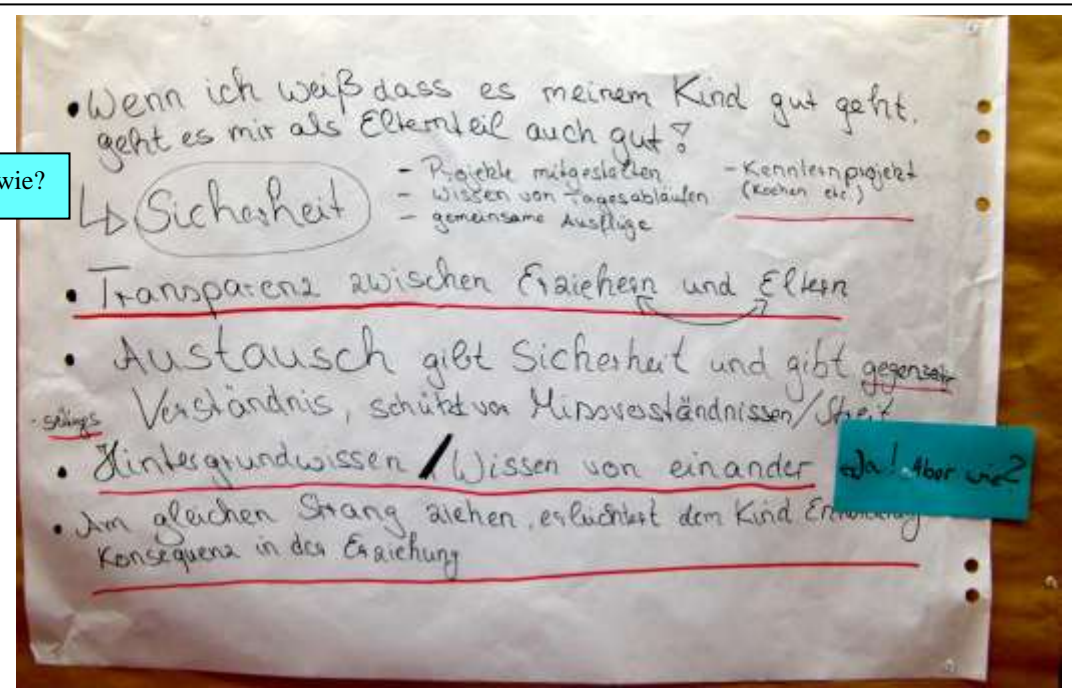 • Wenn ich weiß dass es meinem Kind gut geht,
geht es mir als Elternteil auch gut?
wie?
↳ Sicherheit
- Projekte mitgestalten
- Wissen von Tagesabläufen
- gemeinsame Ausflüge
- Kennlernprojekt
(Kochen etc.)
• Transparenz zwischen Erziehern und Eltern
• Austausch gibt Sicherheit und gibt gegenseitiges
Verständnis, schützt vor Missverständnissen/Streit
• Hintergrundwissen / Wissen von einander
Ja! Aber wie?
• Am gleichen Strang ziehen, erleichtert dem Kind Entwicklung
Konsequenz in der Erziehung